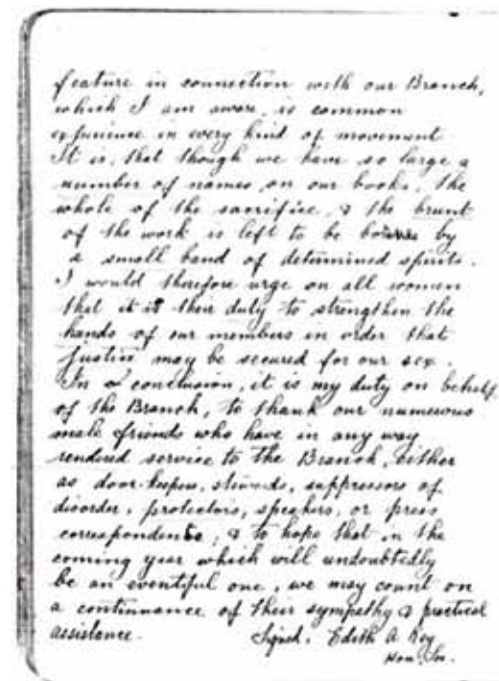 feature in connection with our Branch,
which I am aware, is common
experience in every kind of movement
It is, that though we have so large a
number of names on our books, the
whole of the sacrifice, & the brunt
of the work is left to be borne by
a small band of determined spirits.
I would therefore urge on all women
that it is their duty to strengthen the
hands of our members in order that
justice may be secured for our sex.
In conclusion, it is my duty on behalf
of the Branch, to thank our numerous
male friends who have in any way
rendered service to the Branch, either
as door-keepers, stewards, suppressors of
disorder, protectors, speakers, or press
correspondents; & to hope that in the
coming year which will undoubtedly
be an eventful one, we may count on
a continuance of their sympathy & practical
assistance. Signed, Edith A
Hon. Sec.